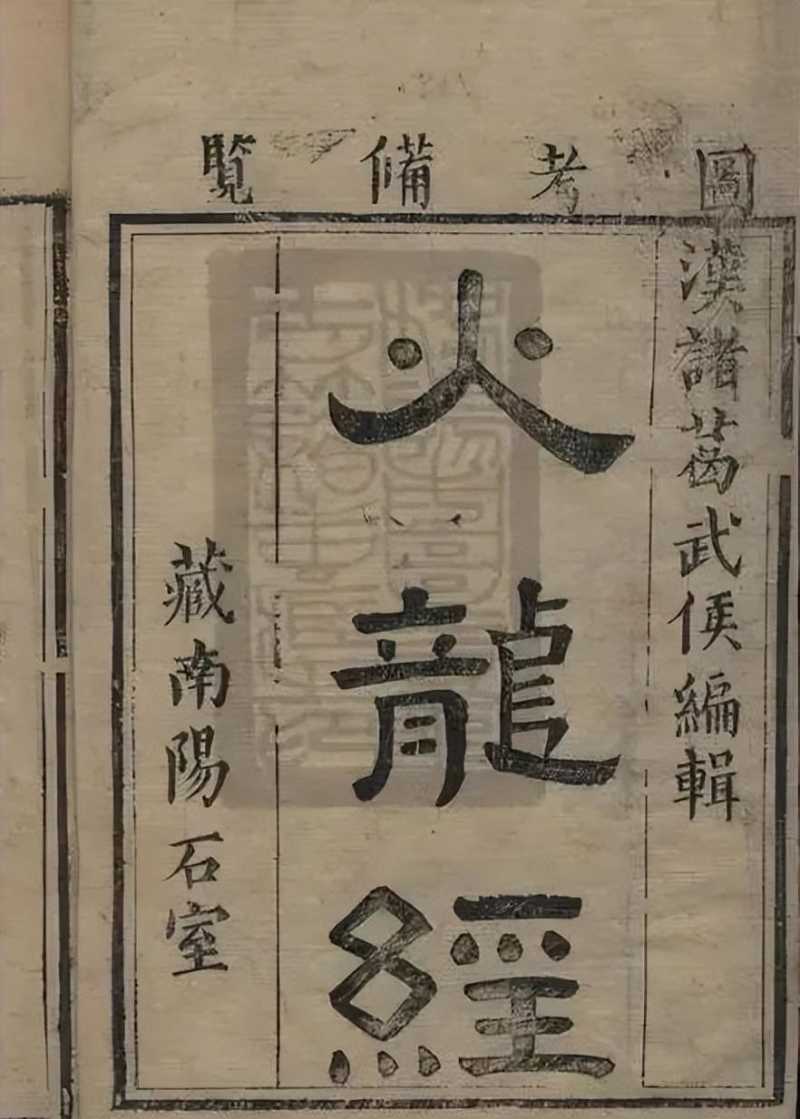 圖考備覽
漢諸葛武侯編輯
火龍經
藏南陽石室